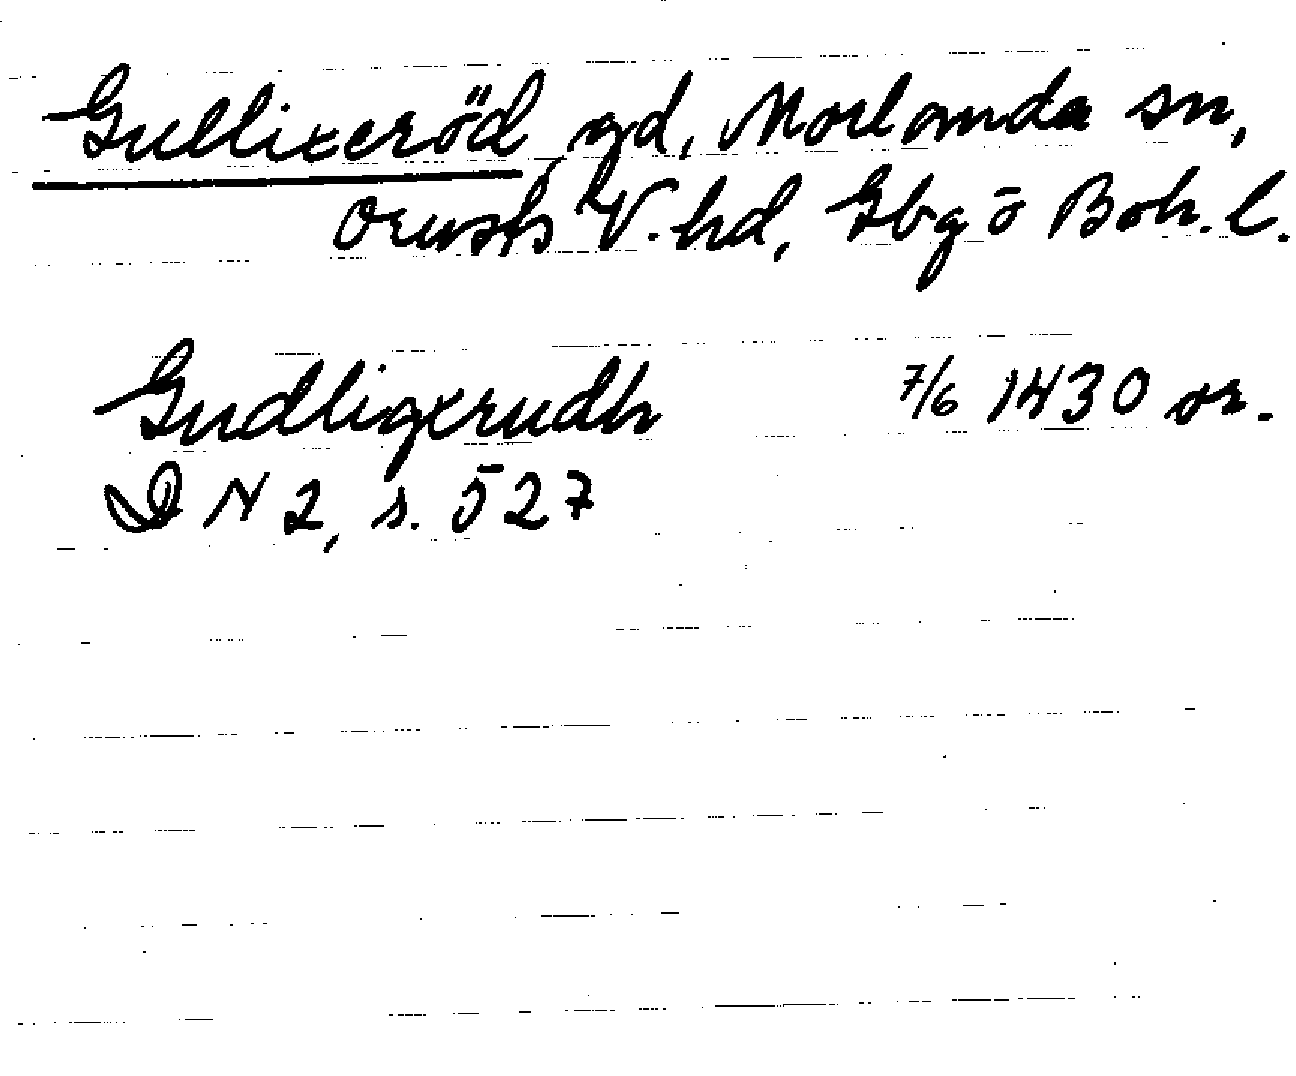 Gullixeröd, gd, Morlanda sn,
Orusts V. hd, Gbg ō Boh. l.
Gudligxrudh 7/6 1430 or.
DN 2, s. 527